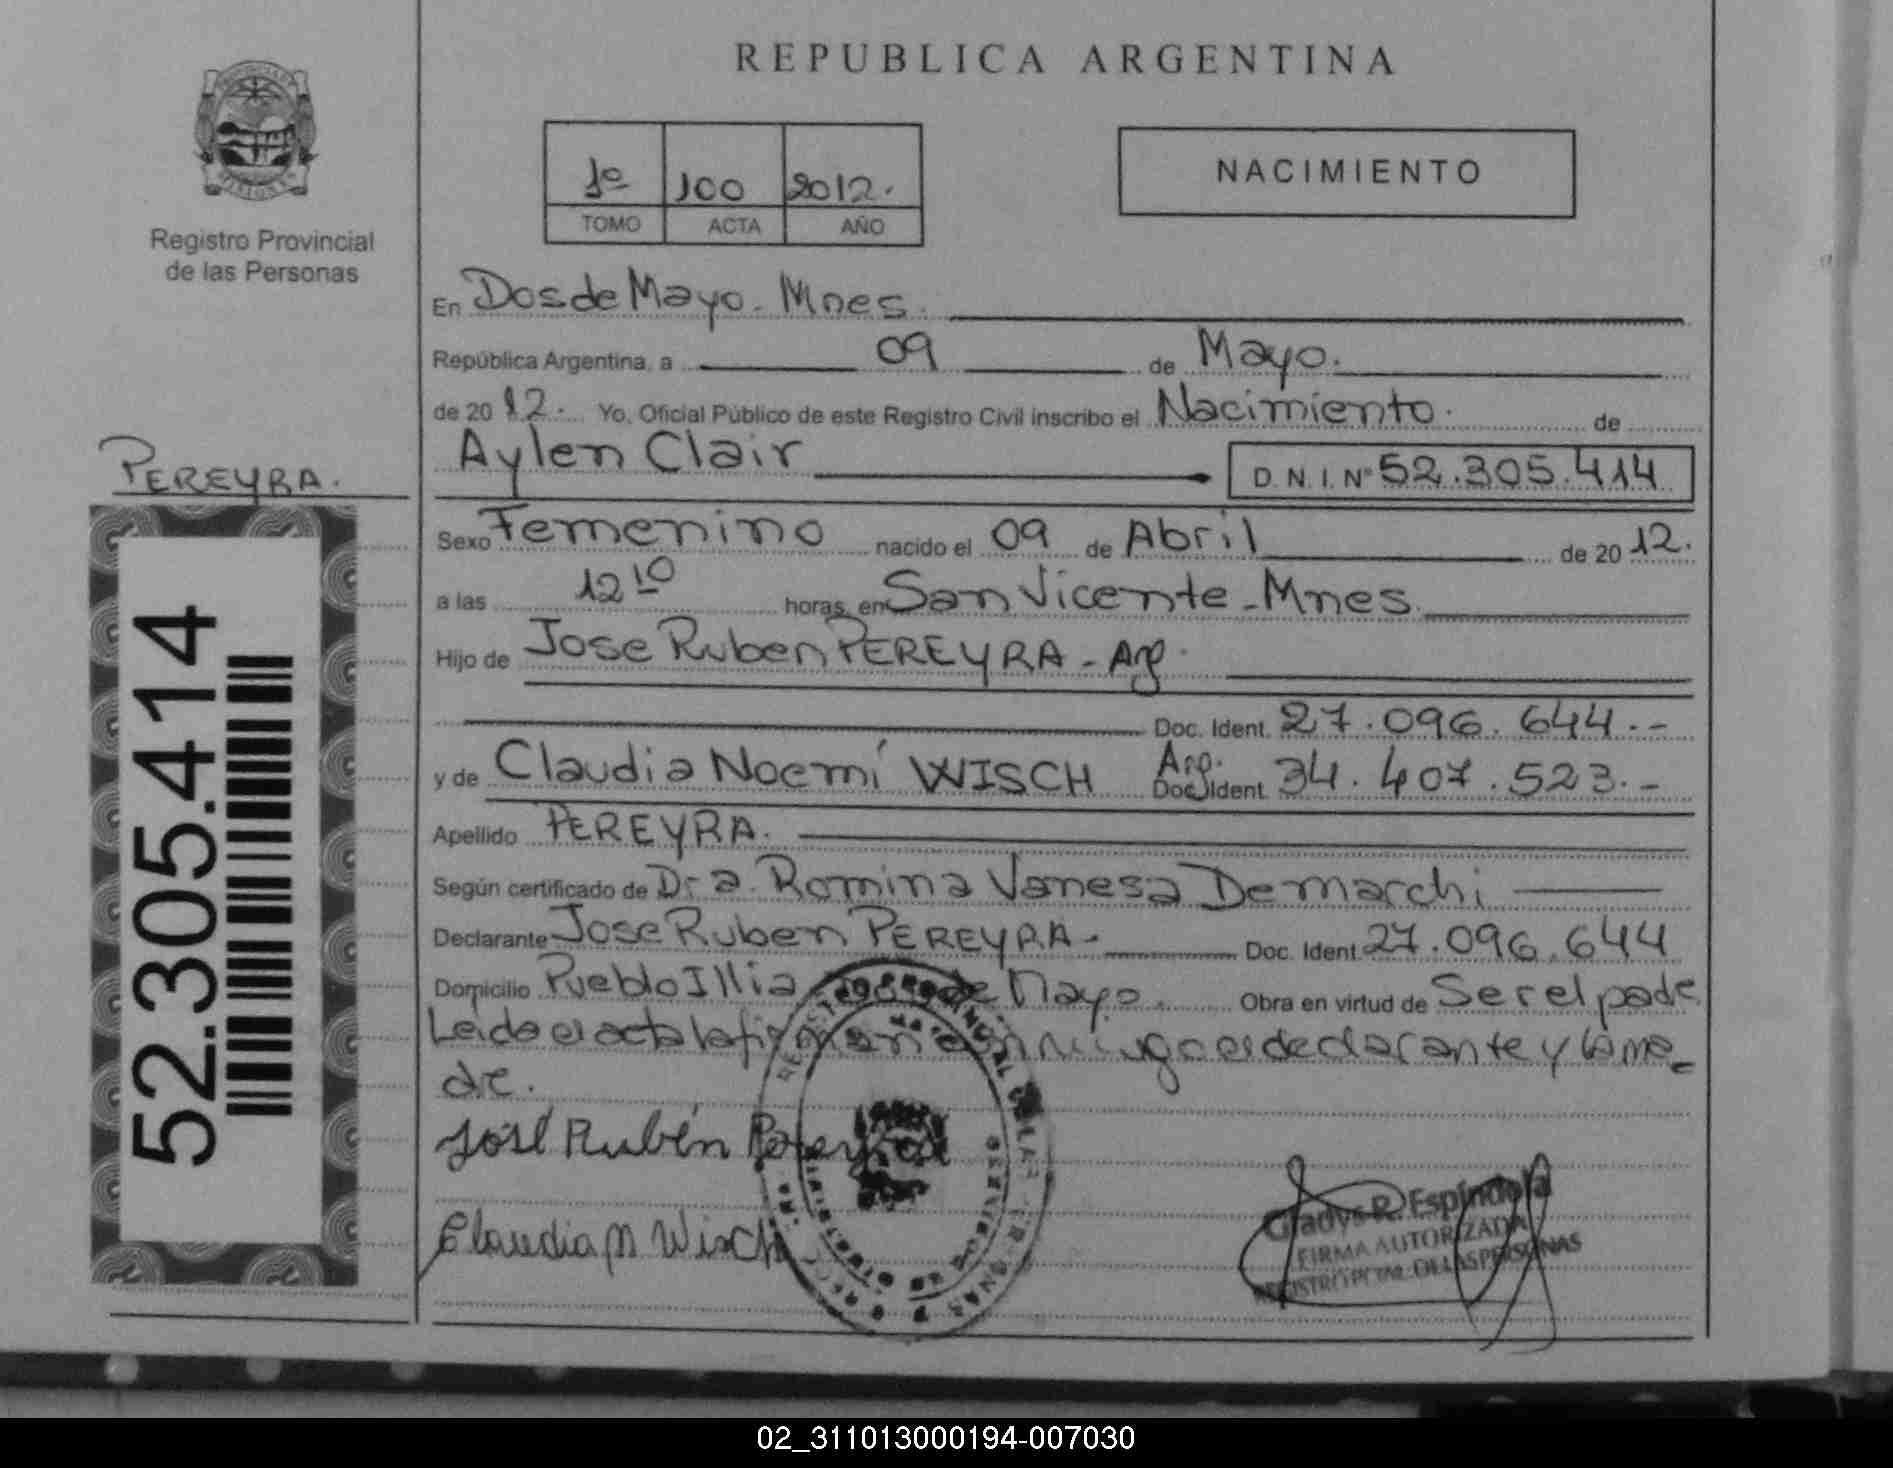 REPUBLICA ARGENTINA
Registro Provincial
de las Personas
1º 100 2012.
TOMO ACTA AÑO
NACIMIENTO
En Dos de Mayo - Mnes.
República Argentina, a 09 de Mayo.
de 2012. Yo, Oficial Público de este Registro Civil inscribo el Nacimiento. de
PEREYRA.
Aylen Clair
D. N. I. Nº 52.305.414
Sexo Femenino nacido el 09 de Abril de 2012.
a las 12 10 horas, en San Vicente - Mnes.
Hijo de Jose Ruben PEREYRA - Arg.
Doc. Ident. 27.096.644.-
y de Claudia Noemí WISCH Arg. Doc. Ident. 34.407.523.-
Apellido PEREYRA.
Según certificado de Dra. Romina Vanesa Demarchi
Declarante Jose Ruben PEREYRA - Doc. Ident. 27.096.644
Domicilio Pueblo Illia de Mayo. Obra en virtud de Ser el padre
Leida el acta la firman conmigo el declarante y la ma-
dre.
José Rubén Pereyra
Claudia N Wisch
Gladys R. Espíndola
FIRMA AUTORIZADA
REGISTRO PCIAL. DE LAS PERSONAS
52.305.414
02_311013000194-007030